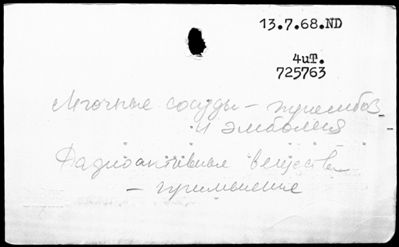 13.7.68.ND
4uT.
725763
Легочные сосуды – тромбоз
и эмболия
Радиоактивные вещества
– применение